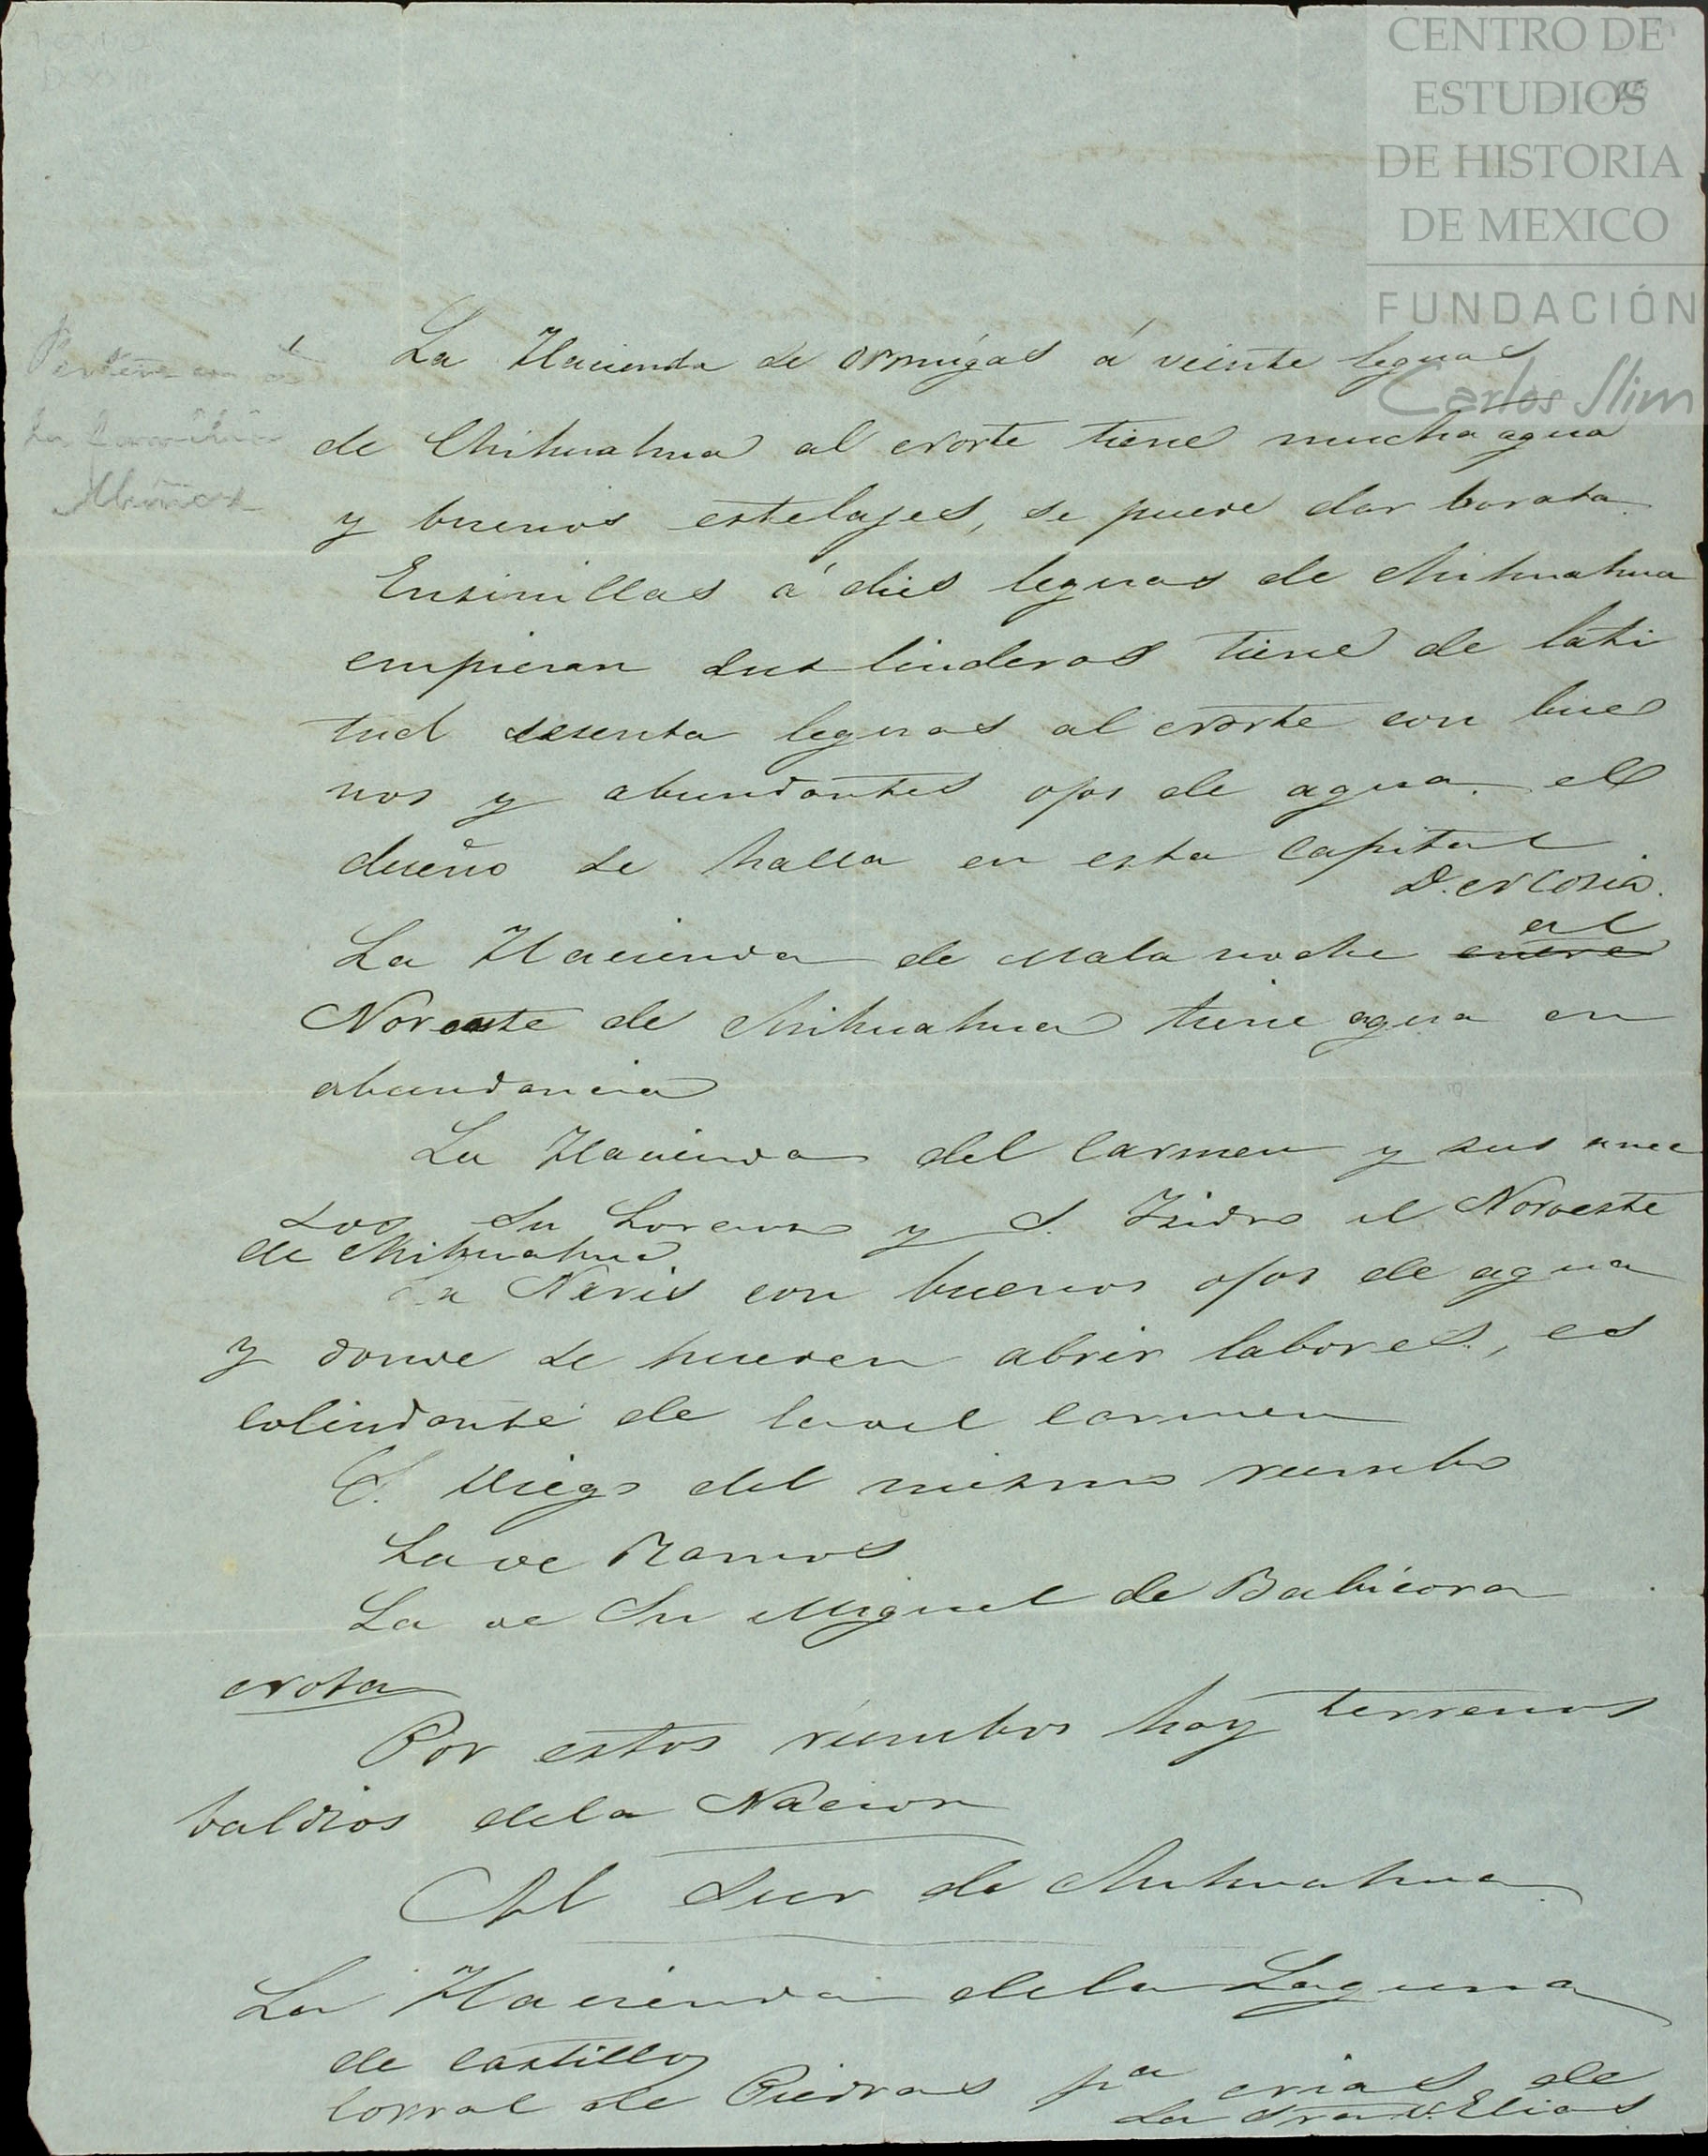 CENTRO DE
ESTUDIOS
DE HISTORIA
DE MEXICO
FUNDACIÓN
Carlos Slim
Pertenecen á
la familia
Muñoz
La Hacienda de Ormígas á veinte leguas
de Chihuahua al Norte tiene mucha agua
y buenos estelajes, se puede dar barata.
Ensinillas á dies leguas de Chihuahua
empiesan sus linderos tiene de lati
tud sesenta leguas al Norte con bue
nos y abundantes ojos de agua. el
dueño se halla en esta Capital
D.
La Hacienda de Mala noche entre al
Noroeste de Chihuahua tiene agua en
abundancia
La Hacienda del Carmen y sus anec
sos Sn Lorenso y S. Isidro al Noroeste
de Chihuahua
La Nieves con buenos ojos de agua
y donde se pueden abrir labores, es
colindante de la del Carmen
S. Diego del mismo rumbo
La de Ramos
La de Sn Miguel de Babícora
Nota
Por estos rúmbos hay terrenos
baldios dela Nacion
Al Sur de Chihuahua
La Hacienda dela Laguna
de Castillo
Corral de Piedras pa crias de
La Sra D. Elias